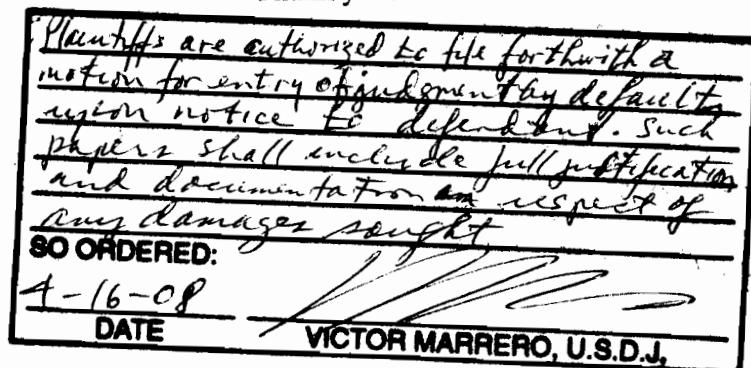 Plaintiffs are authorized to file forthwith a
motion for entry of judgment by default,
upon notice to defendant. Such
papers shall include full justification
and documentation in respect of
any damages sought.
SO ORDERED:
4-16-08
DATE VICTOR MARRERO, U.S.D.J.